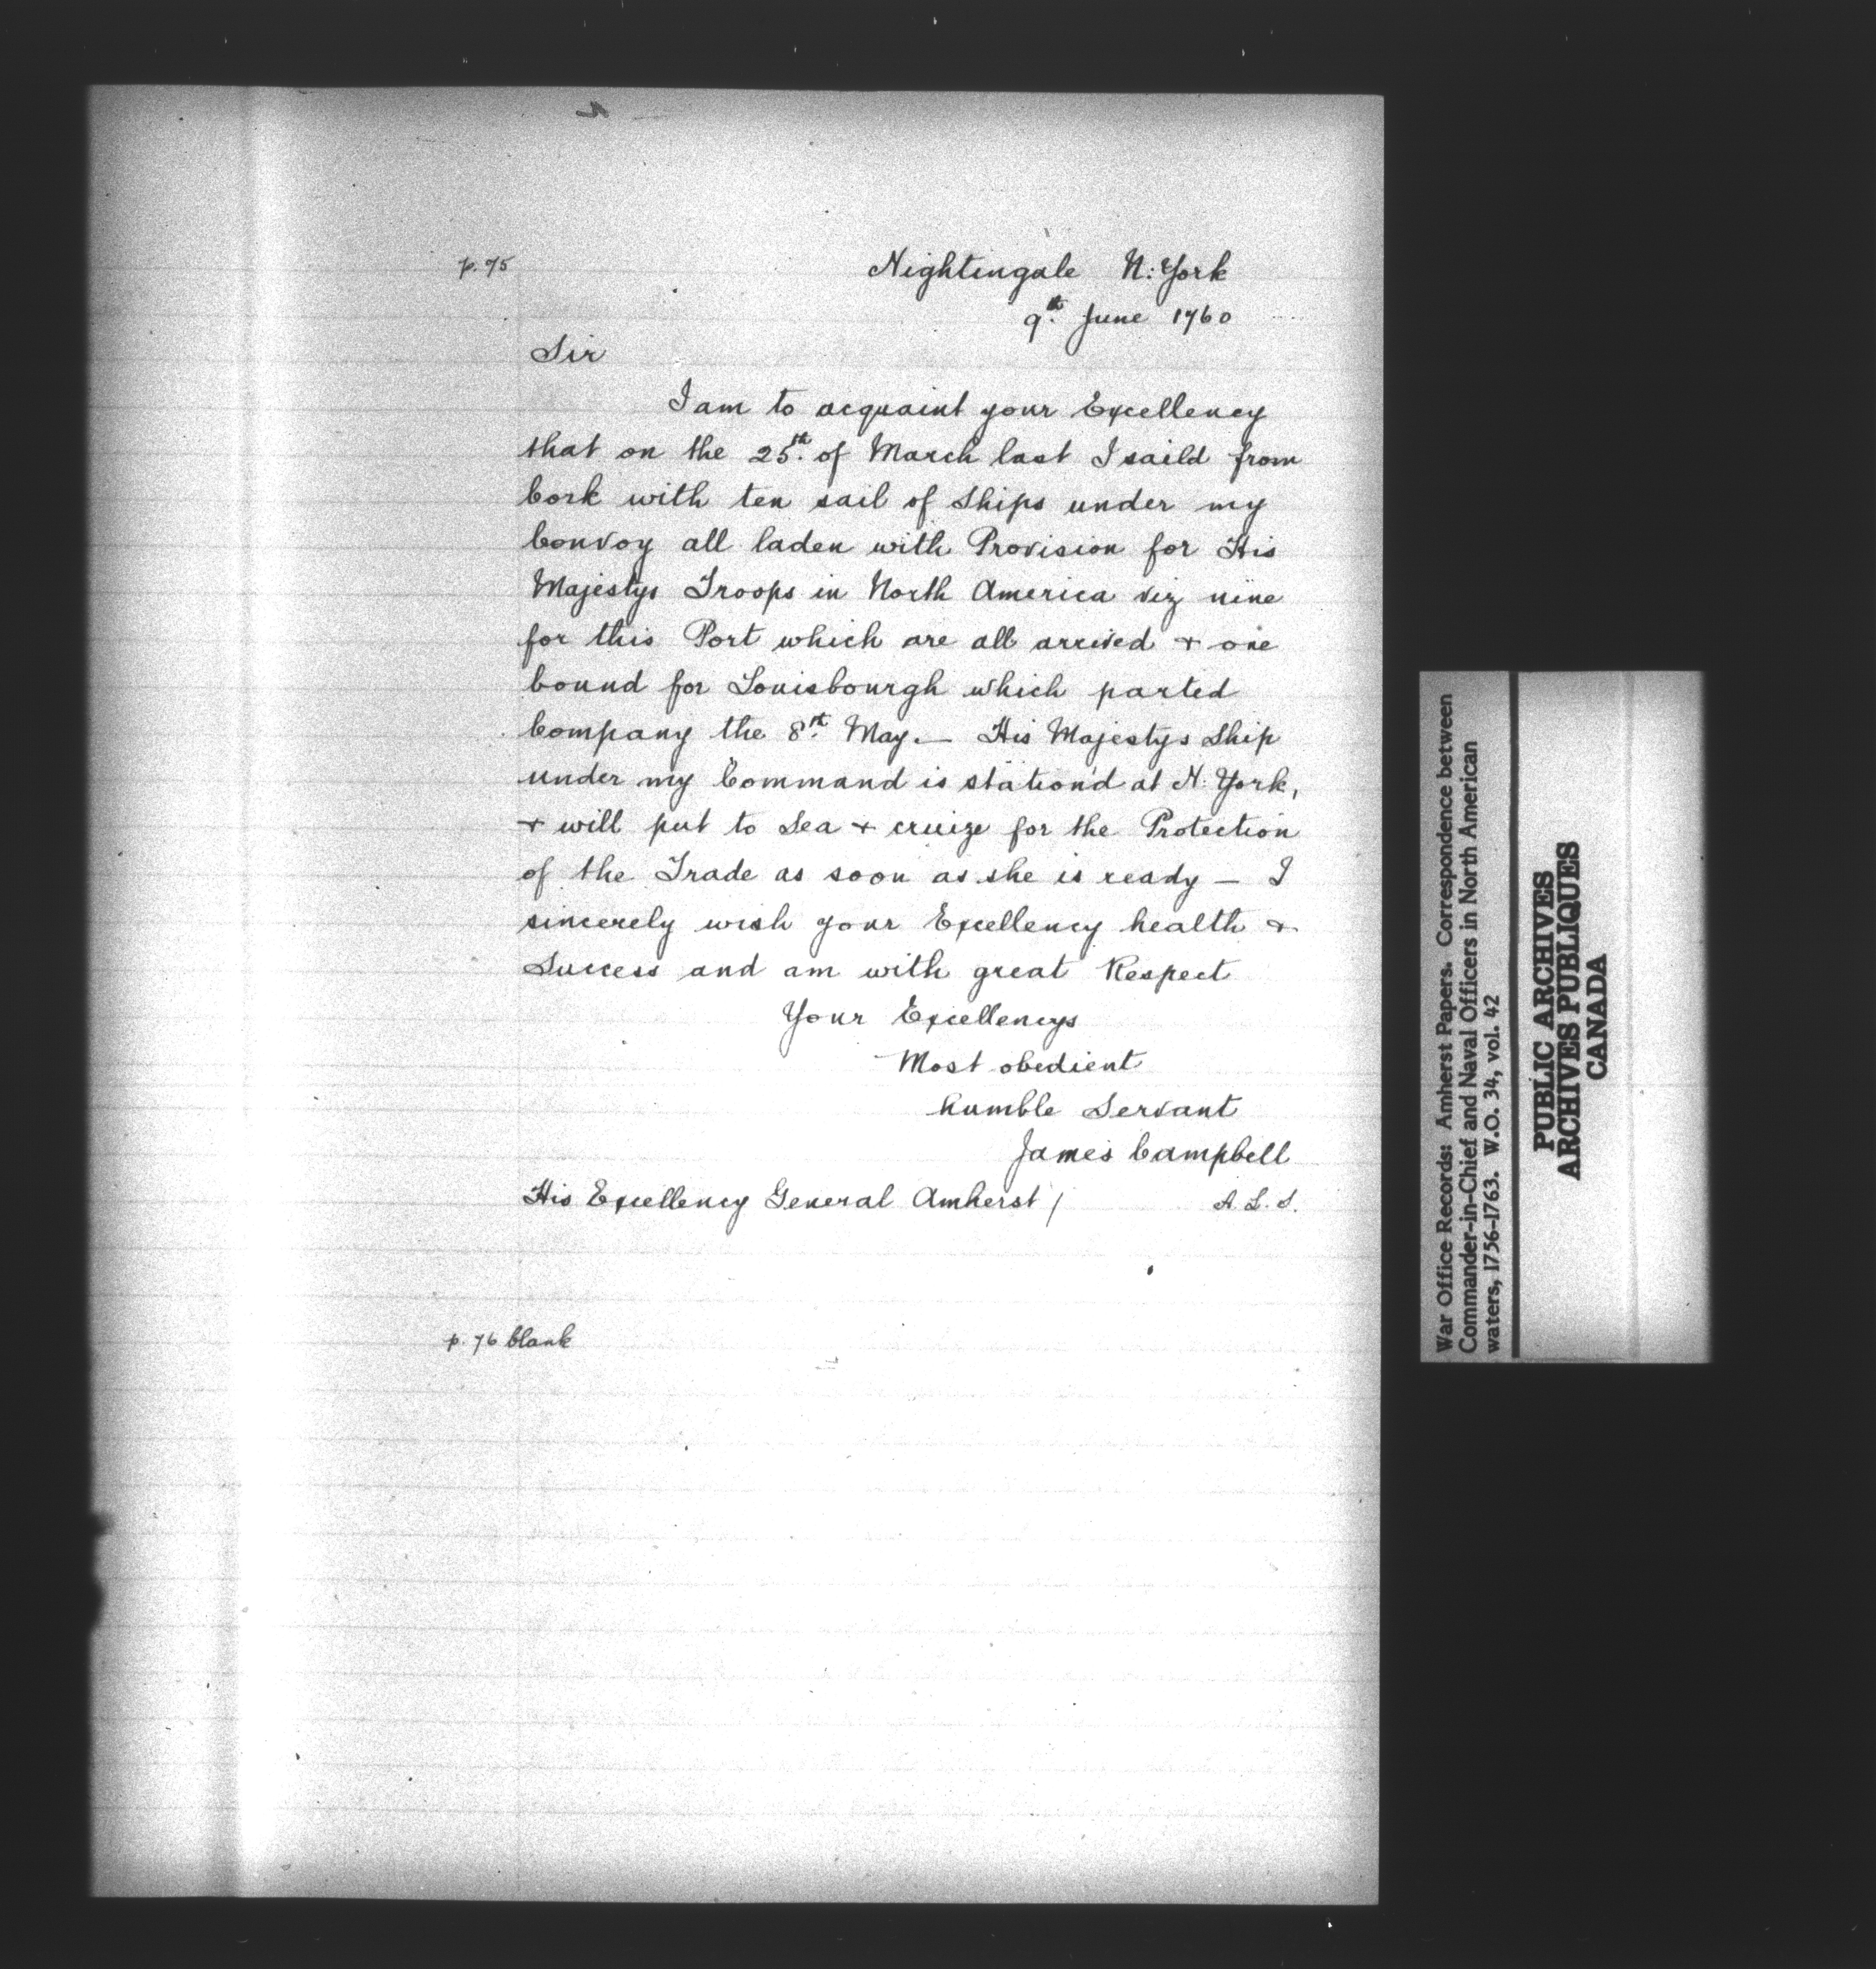 p. 75
Nightingale N: York
9th. June 1760
Sir
I am to acquaint your Excellency
that on the 25th. of March last I saild from
Cork with ten sail of Ships under my
Convoy all laden with Provision for His
Majestys Troops in North America viz nine
for this Port which are all arrived + one
bound for Louisbourgh which parted
Company the 8th. May. — His Majestys Ship
under my Command is station'd at N: York,
+ will put to Sea + cruize for the Protection
of the Trade as soon as she is ready — I
sincerely wish your Excellency health +
Success and am with great Respect
Your Excellencys
Most obedient
humble Servant
James Campbell
His Excellency General Amherst /
A. L. S.
p. 76 blank
War Office Records: Amherst Papers. Correspondence between
Commander-in-Chief and Naval Officers in North American
waters, 1756-1763. W.O. 34, vol. 42
PUBLIC ARCHIVES
ARCHIVES PUBLIQUES
CANADA